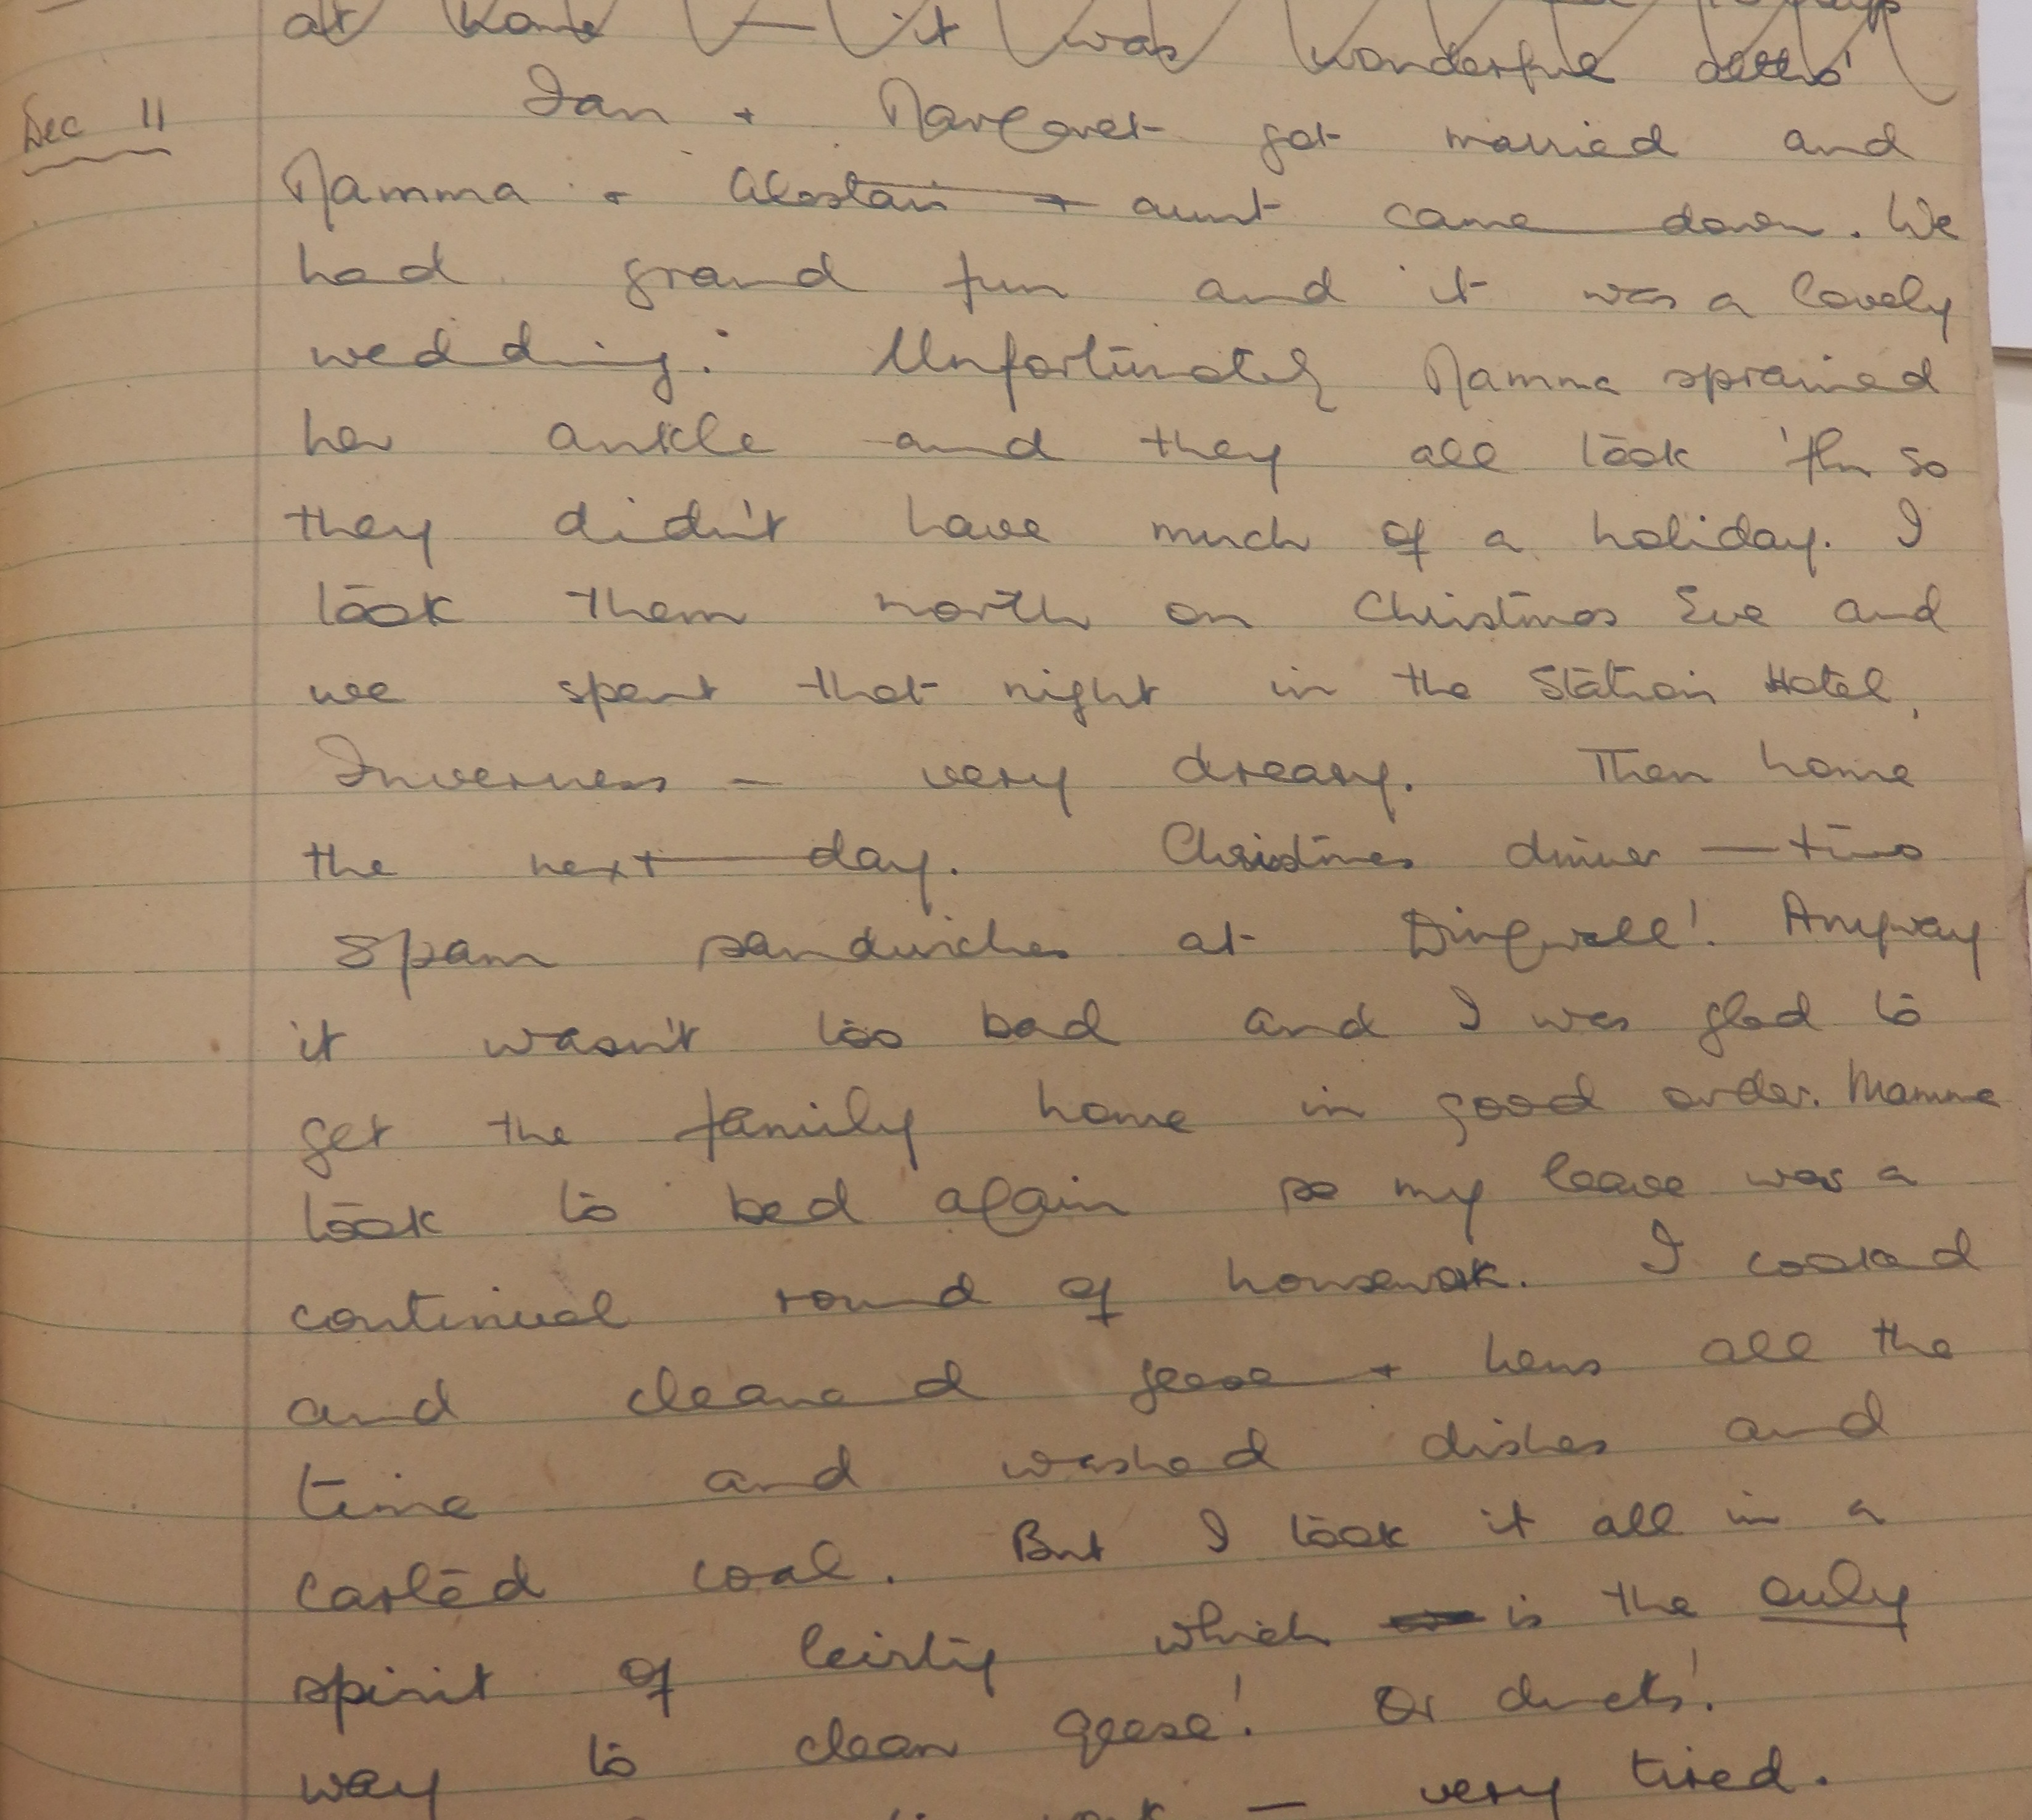 at home — it was wonderful
Dec 11
Ian + Margaret got married and
Mamma + Alastair + aunt came down. We
had grand fun and it was a lovely
wedding. Unfortunately Mamma sprained
her ankle and they all took 'flu so
they didn't have much of a holiday. I
took them north on Christmas Eve and
we spent that night in the Station Hotel,
Inverness — very dreary. Then home
the next day. Christmas dinner — two
Spam sandwiches at Dingwall! Anyway
it wasn't too bad and I was glad to
get the family home in good order. Mamma
took to bed again so my leave was a
continual round of housework. I cooked
and cleaned geese + hens all the
time and washed dishes and
carted coal. But I took it all in a
spirit of which is the only
way to clean geese! Or ducks!
work — very tired.